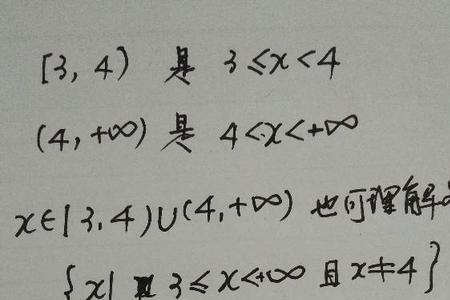 [3, 4) 是 3≤x<4
(4, +∞) 是 4<x<+∞
x∈[3, 4)∪(4, +∞) 也可理解
{x| 3≤x<+∞ 且 x≠4}